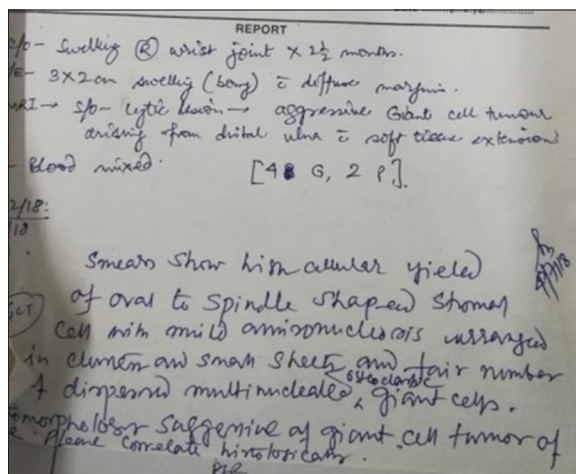 REPORT
c/o - Swelling Ⓡ wrist joint × 2½ months.
/E - 3×2cm swelling (bony) c̄ diffuse margin.
MRI → s/o - Lytic lesion → aggressive Giant cell tumour
arising from distal ulna c̄ soft tissue extension
- Blood mixed. [4 G, 2 P].
2/18:
/18
Smears show high cellular yield
of oval to spindle shaped stromal
cell with mild anisonucleosis arranged
in clusters and small sheets and fair number
of dispersed multinucleated osteoclastic giant cells.
tomorphology suggestive of giant cell tumor of
Please correlate histologically.